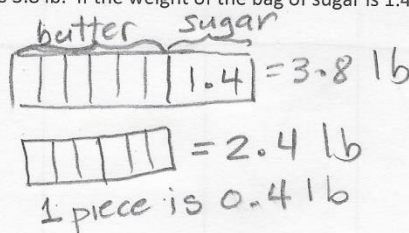 is 3.8 lb. If the weight of the bag of sugar is 1.4
butter sugar
1.4 = 3.8 lb
= 2.4 lb
1 piece is 0.4 lb